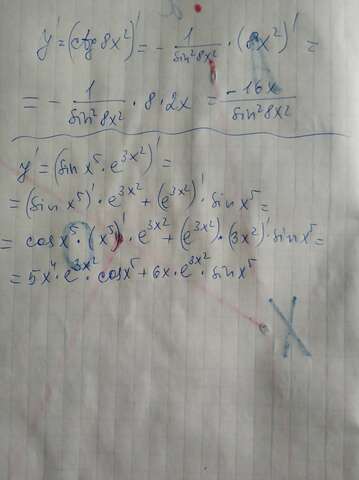 y' = (ctg 8x²)' = - 1/sin²8x² · (8x²)' =
= - 1/sin²8x² · 8 · 2x = -16x/sin²8x²
y' = (sin x⁵ · e^3x²)' =
= (sin x⁵)' · e^3x² + (e^3x²)' · sin x⁵ =
= cos x⁵ · (x⁵)' · e^3x² + (e^3x²) · (3x²)' · sin x⁵ =
= 5x⁴ · e^3x² · cos x⁵ + 6x · e^3x² · sin x⁵